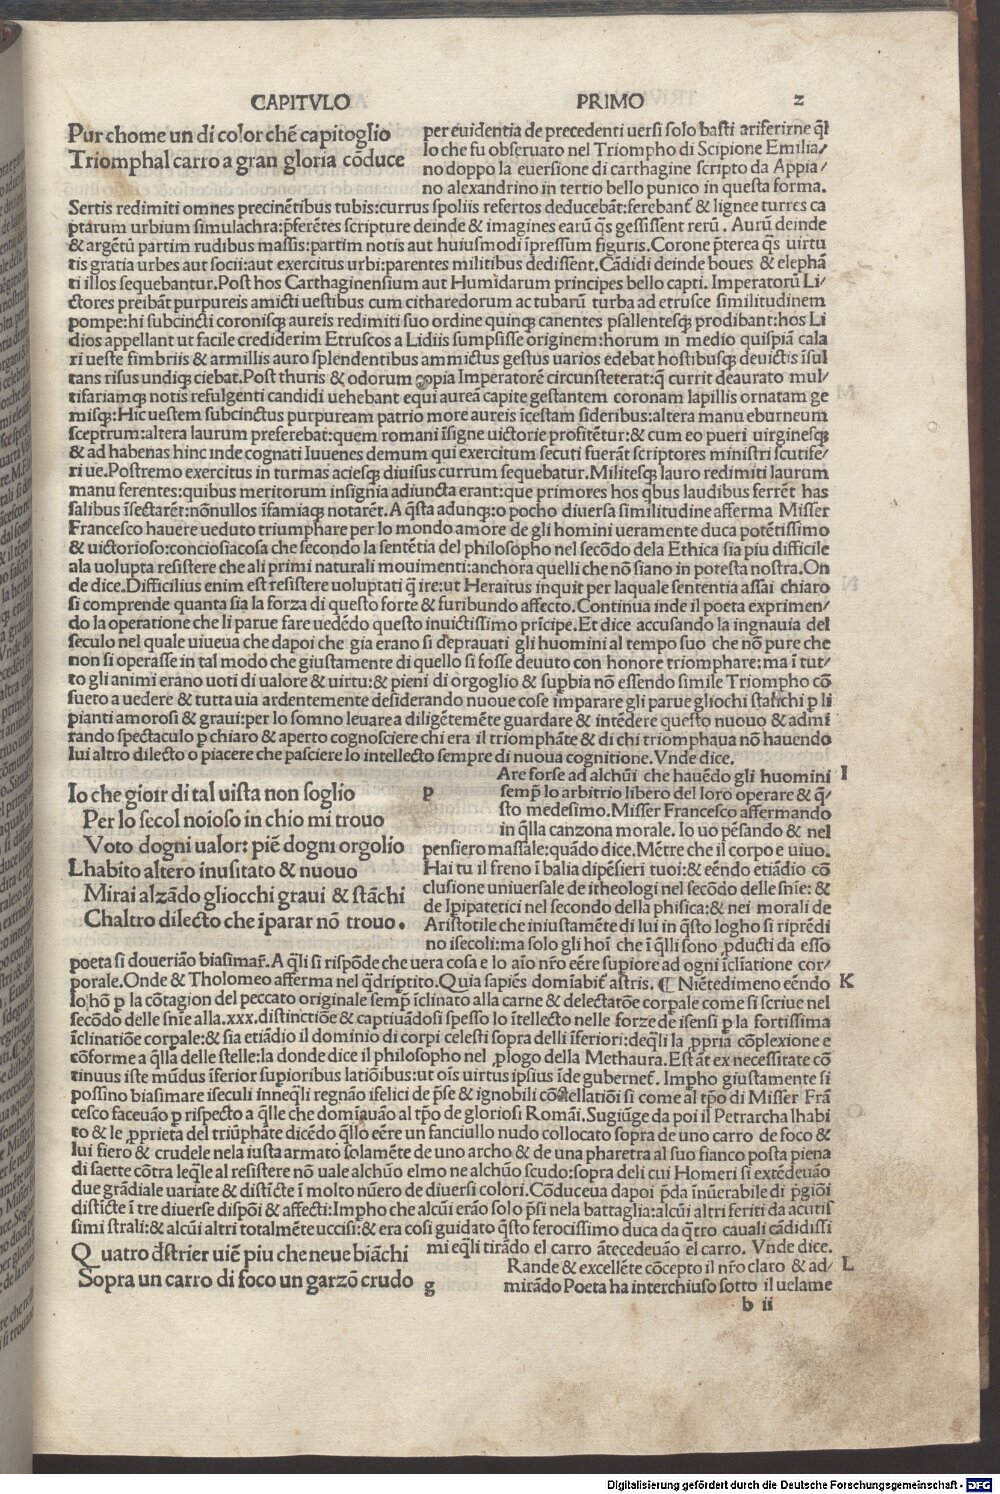 CAPITVLO PRIMO 2
Pur chome un di color chē capitoglio
Triomphal carro a gran gloria cōduce
per euidentia de precedenti uersi solo basti ariferirne q̄l
lo che fu obseruato nel Triompho di Scipione Emilia/
no doppo la euersione di carthagine scripto da Appia/
no alexandrino in tertio bello punico in questa forma.
Sertis redimiti omnes precinētibus tubis:currus spoliis refertos deducebāt:ferebant̄ & lignee turres ca
ptarum urbium simulachra:p̄ferētes scripture deinde & imagines earū q̄s gessissent rerū. Aurū deinde
& argētū partim rudibus massis:partim notis aut huiusmodi īpressum figuris.Corone p̄terea q̄s uirtu
tis gratia urbes aut socii:aut exercitus urbi:parentes militibus dedissent.Cādidi deinde boues & elephā
ti illos sequebantur.Post hos Carthaginensium aut Humidarum principes bello capti. Imperatorū Li/
ctores preibāt purpureis amicti uestibus cum citharedorum ac tubarū turba ad etrusce similitudinem
pompe:hi subcincti coronisq; aureis redimiti suo ordine quinq; canentes psallentesq; prodibant:hos Li
dios appellant ut facile crediderim Etruscos a Lidiis sumpsisse originem:horum in medio quispiā cala
ri ueste fimbriis & armillis auro splendentibus ammictus gestus uarios edebat hostibusq; deuictis īsul
tans risus undiq; ciebat.Post thuris & odorum copia Imperatorē circunsteterat:q̄ currit deaurato mul/
tifariamq; notis refulgenti candidi uehebant equi aureā capite gestantem coronam lapillis ornatam ge
misq;:Hic uestem subcinctus purpuream patrio more aureis ītestam sideribus:altera manu eburneum
sceptrum:altera laurum preferebat:quem romani īsigne uictorie profitētur:& cum eo pueri uirginesq;
& ad habenas hinc inde cognati Iuuenes demum qui exercitum secuti fuerāt scriptores ministri scutife/
ri ue.Postremo exercitus in turmas aciesq; diuisus currum sequebatur.Militesq; lauro redimiti laurum
manu ferentes:quibus meritorum insignia adiuncta erant:que primores hos q̄bus laudibus ferrēt has
salibus īsectarēt:nōnullos īfamiaq; notarēt.A q̄sta adunq;:o pocho diuersa similitudine afferma Misser
Francesco hauere ueduto triumphare per lo mondo amore de gli homini ueramente duca potētissimo
& uictorioso:conciosiacosa che secondo la sentētia del philosopho nel secōdo dela Ethica sia piu difficile
ala uolupta resistere che ali primi naturali mouimenti:anchora quelli che nō siano in potesta nostra.On
de dice.Difficilius enim est resistere uoluptati q̄ ire:ut Heraitus inquit per laquale sententia assai chiaro
si comprende quanta sia la forza di questo forte & furibundo affecto.Continua inde il poeta exprimen/
do la operatione che li parue fare uedēdo questo inuictissimo prīcipe.Et dice accusando la ingnauia del
seculo nel quale uiueua che dapoi che gia erano si deprauati gli huomini al tempo suo che nō pure che
non si operasse in tal modo che giustamente di quello si fosse deuuto con honore triomphare:ma ī tut/
to gli animi erano uoti di ualore & uirtu:& pieni di orgoglio & supbia nō essendo simile Triompho cō
sueto a uedere & tutta uia ardentemente desiderando nuoue cose imparare gli parue gliochi stanchi p li
pianti amorosi & graui:per lo somno leuare a diligētemēte guardare & intēdere questo nuouo & admi
rando spectaculo p chiaro & aperto cognosciere chi era il triomphāte & di chi triomphaua nō hauendo
lui altro dilecto o piacere che pasciere lo intellecto sempre di nuoua cognitione.Vnde dice.
Io che gioir di tal uista non soglio
Per lo secol noioso in chio mi trouo
Voto dogni ualor: piē dogni orgolio
Lhabito altero inusitato & nuouo
Mirai alzādo gliocchi graui & stāchi
Chaltro dilecto che īparar nō trouo.
p Are forse ad alchūi che hauēdo gli huomini I
semp̄ lo arbitrio libero del loro operare & q̄/
sto medesimo.Misser Francesco affermando
in q̄lla canzona morale. Io uo pēsando & nel
pensiero massale:quādo dice.Mētre che il corpo e uiuo.
Hai tu il freno ī balia dipēsieri tuoi:& eēndo etiādio cō
clusione uniuersale de itheologi nel secōdo delle snīe: &
de Ipipatetici nel secondo della phisica:& nei morali de
Aristotile che iniustamēte di lui in q̄sto logho si riprēdi
no isecoli:ma solo gli hoī che ī q̄lli sono pducti da esso
poeta si doueriāo biasimar̄.A q̄li si rispōde che uera cosa e lo aīo nr̄o eēre supiore ad ogni īclīatione cor/
porale.Onde & Tholomeo afferma nel q̄driptito.Quia sapiēs domīabit̄ astris. ¶ Niētedimeno eēndo K
lo hō p la cōtagion del peccato originale semp̄ īclinato alla carne & delectatōe corpale come si scriue nel
secōdo delle snīe alla.xxx.distinctiōe & captiuādosi spesso lo ītellecto nelle forze de isensi p la fortissima
īclinatiōe corpale:& sia etiādio il dominio di corpi celesti sopra delli īferiori:deq̄li la ppria cōplexione e
cōforme a q̄lla delle stelle:la donde dice il philosopho nel plogo della Methaura.Est āt ex necessitate cō
tinuus iste mūdus īferior supioribus latiōibus:ut oīs uirtus ipsius īde gubernet̄. Impho giustamente si
possino biasimare iseculi inneq̄li regnāo ifelici de p̄se & ignobili cōstellatiōi si come al tp̄o di Misser Frā
cesco faceuāo p rispecto a q̄lle che domīauāo al tp̄o de gloriosi Romāi.Sugiūge da poi il Petrarcha lhabi
to & le pprieta del triūphāte dicēdo q̄llo eēre un fanciullo nudo collocato sopra de uno carro de foco &
lui fiero & crudele nela iusta armato solamēte de uno archo & de una pharetra al suo fianco posta piena
di saette cōtra leq̄le al resistere nō uale alchūo elmo ne alchūo scudo:sopra deli cui Homeri si extēdeuāo
due grādiale uariate & distīcte ī molto nūero de diuersi colori.Cōduceua dapoi p̄da īnūerabile di p̄giōi
distīcte ī tre diuerse dispōi & affecti:Impho che alcūi erāo solo p̄si nela battaglia:alcūi altri feriti da acutis
simi strali:& alcūi altri totalmēte uccisi:& era cosi guidato q̄sto ferocissimo duca da q̄tro cauali cādidissi
Quatro d̄strier uiē piu che neue biāchi
Sopra un carro di foco un garzō crudo
mi eq̄li tirādo el carro ātecedeuāo el carro. Vnde dice.
g Rande & excellēte cōcepto il nr̄o claro & ad/ L
mirādo Poeta ha interchiuso sotto il uelame
b ii
Digitalisierung gefördert durch die Deutsche Forschungsgemeinschaft - DFG